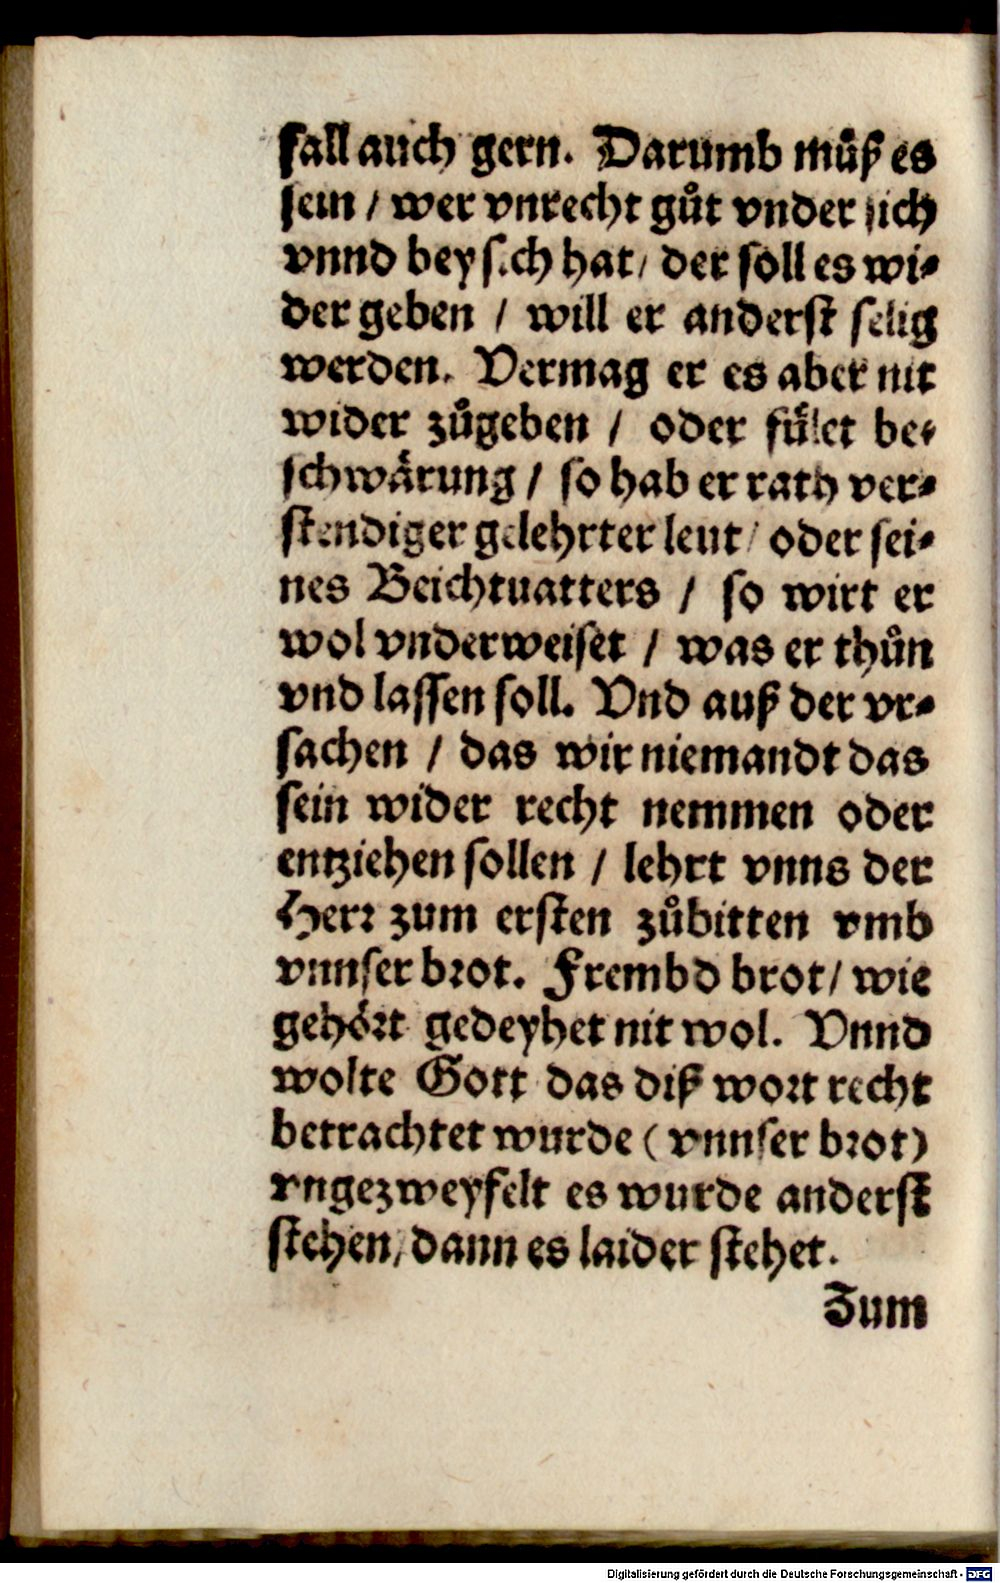 fall auch gern. Darumb muͦß es
sein / wer vnrecht guͦt vnder sich
vnnd bey sich hat / der soll es wi⸗
der geben / will er anderst selig
werden. Vermag er es aber nit
wider zuͦgeben / oder fuͤlet be⸗
schwaͤrung / so hab er rath ver⸗
stendiger gelehrter leut / oder sei⸗
nes Beichtuatters / so wirt er
wol vnderweiset / was er thuͦn
vnd lassen soll. Vnd auß der vr⸗
sachen / das wir niemandt das
sein wider recht nemmen oder
entziehen sollen / lehrt vnns der
Herr zum ersten zuͦbitten vmb
vnnser brot. Frembd brot / wie
gehoͤrt gedeyhet nit wol. Vnnd
wolte Gott das diß wort recht
betrachtet wurde ( vnnser brot )
vngezweyfelt es wurde anderst
stehen / dann es laider stehet.
Zum
Digitalisierung gefördert durch die Deutsche Forschungsgemeinschaft - DFG